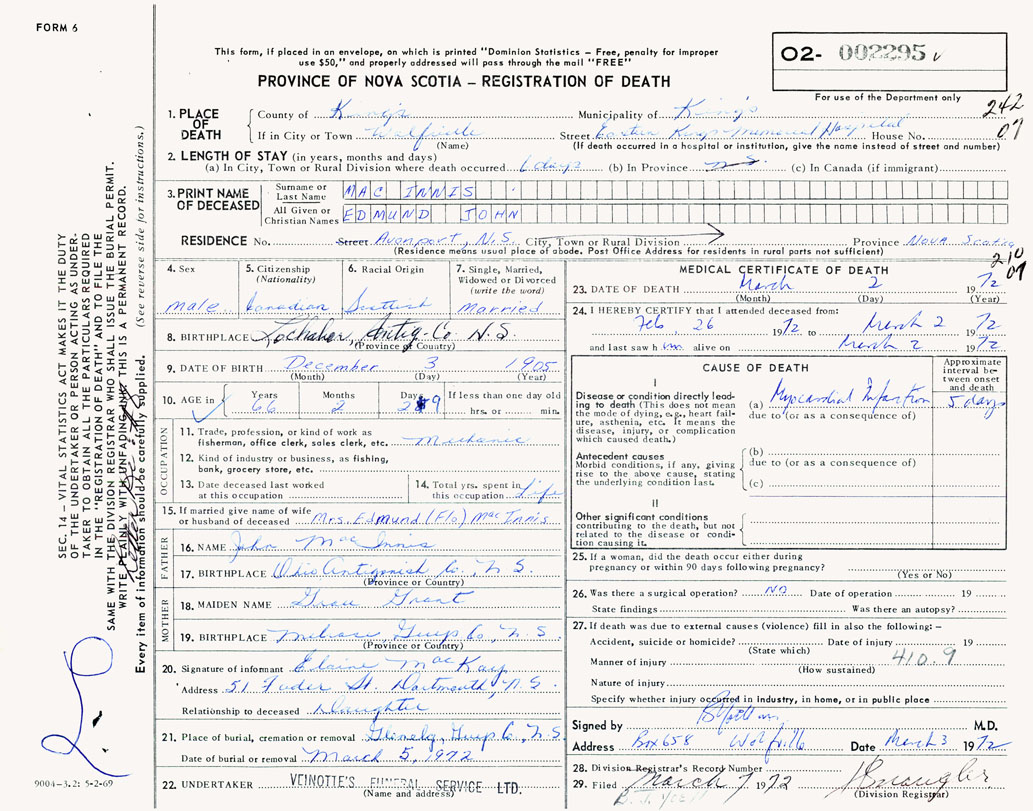 FORM 6
This form, if placed in an envelope, on which is printed "Dominion Statistics – Free, penalty for improper
use $50," and properly addressed will pass through the mail "FREE"
PROVINCE OF NOVA SCOTIA – REGISTRATION OF DEATH
02- 002295
For use of the Department only
242
07
1. PLACE OF DEATH
County of King's Municipality of King's
If in City or Town Wolfville Street Eastern Kings Memorial Hospital House No.
(Name) (If death occurred in a hospital or institution, give the name instead of street and number)
2. LENGTH OF STAY (in years, months and days)
(a) In City, Town or Rural Division where death occurred 6 days (b) In Province N.S. (c) In Canada (if immigrant)
3. PRINT NAME OF DECEASED
Surname or Last Name MAC INNIS
All Given or Christian Names EDMUND JOHN
RESIDENCE No. Street Avonport, N.S. City, Town or Rural Division Province Nova Scotia
(Residence means usual place of abode. Post Office Address for residents in rural parts not sufficient)
210
07
4. Sex
male
5. Citizenship (Nationality)
Canadian
6. Racial Origin
Scottish
7. Single, Married, Widowed or Divorced (write the word)
Married
8. BIRTHPLACE Lochaber, Antig. Co N.S.
(Province or Country)
9. DATE OF BIRTH December 3 1905
(Month) (Day) (Year)
10. AGE in Years Months Days If less than one day
66 2 hrs. or min.
OCCUPATION
11. Trade, profession, or kind of work as fisherman, office clerk, sales clerk, etc. Mechanic
12. Kind of industry or business, as fishing, bank, grocery store, etc.
13. Date deceased last worked at this occupation
14. Total yrs. spent in this occupation Life
15. If married give name of wife or husband of deceased Mrs. Edmund (Flo) MacInnis
FATHER
16. NAME John MacInnis
17. BIRTHPLACE Antigonish Co., N.S.
(Province or Country)
MOTHER
18. MAIDEN NAME Grant
19. BIRTHPLACE Melrose, Guys Co., N.S.
(Province or Country)
20. Signature of informant Elaine MacKay
Address 51 Tudor St. Dartmouth, N.S.
Relationship to deceased Daughter
21. Place of burial, cremation or removal Glenelg, Guys Co, N.S.
Date of burial or removal March 5, 1972
22. UNDERTAKER VEINOTTE'S FUNERAL SERVICE LTD.
(Name and address)
MEDICAL CERTIFICATE OF DEATH
23. DATE OF DEATH March 2 1972
(Month) (Day) (Year)
24. I HEREBY CERTIFY that I attended deceased from:
Feb. 26 1972 to March 2 1972
and last saw him alive on March 2 1972
CAUSE OF DEATH
Approximate interval between onset and death
I
Disease or condition directly leading to death (This does not mean the mode of dying, e.g., heart failure, asthenia, etc. It means the disease, injury, or complication which caused death.)
(a) Myocardial Infarction 5 days
due to (or as a consequence of)
Antecedent causes
Morbid conditions, if any, giving rise to the above cause, stating the underlying condition last.
(b)
due to (or as a consequence of)
(c)
II
Other significant conditions contributing to the death, but not related to the disease or condition causing it.
25. If a woman, did the death occur either during pregnancy or within 90 days following pregnancy?
(Yes or No)
26. Was there a surgical operation? NO Date of operation 19
State findings Was there an autopsy?
27. If death was due to external causes (violence) fill in also the following:–
Accident, suicide or homicide? Date of injury 19
(State which)
Manner of injury 410.9
(How sustained)
Nature of injury
Specify whether injury occurred in industry, in home, or in public place
Signed by M.D.
Address Box 658 Wolfville Date March 3 1972
28. Division Registrar's Record Number
29. Filed March 7 1972
(Division Registrar)
SEC. 14 – VITAL STATISTICS ACT MAKES IT THE DUTY
OF THE UNDERTAKER OR PERSON ACTING AS UNDER-
TAKER TO OBTAIN ALL THE PARTICULARS REQUIRED
IN THE "REGISTRATION OF DEATH" AND TO FILE THE
SAME WITH THE DIVISION REGISTRAR WHO SHALL ISSUE THE BURIAL PERMIT.
WRITE PLAINLY WITH UNFADING INK THIS IS A PERMANENT RECORD.
Every item of information should be carefully supplied. (See reverse side for instructions.)
9004-3.2: 5-2-69